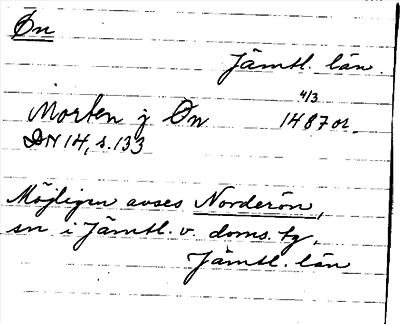 Ön
Jämtl. län.
4/3
Morten j Øn 1487 or.
DN 14, s. 133
Möjligen avses Norderön,
sn i Jämtl. v. doms. hg,
Jämtl. län